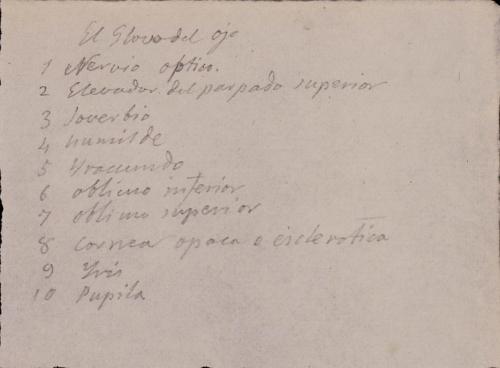 El Glovo del ojo
1 Nervio optico.
2 Elevador del parpado superior
3 Soverbio
4 humilde
5 Yracundo
6 oblicuo inferior
7 oblicuo superior
8 Cornea opaca o esclerotica
9 Yris
10 Pupila